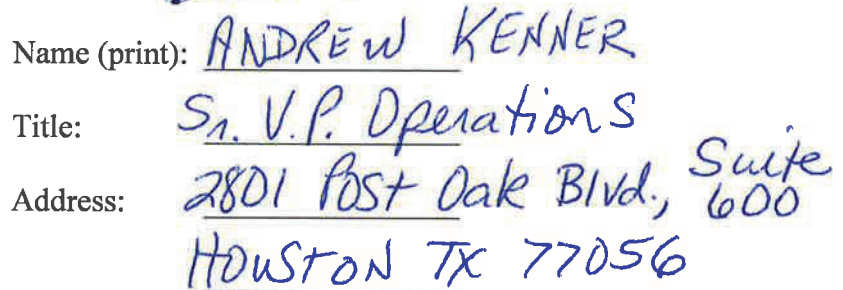 Name (print): ANDREW KENNER
Title: Sr. V.P. Operations
Address: 2801 Post Oak Blvd., Suite 600
HOUSTON TX 77056